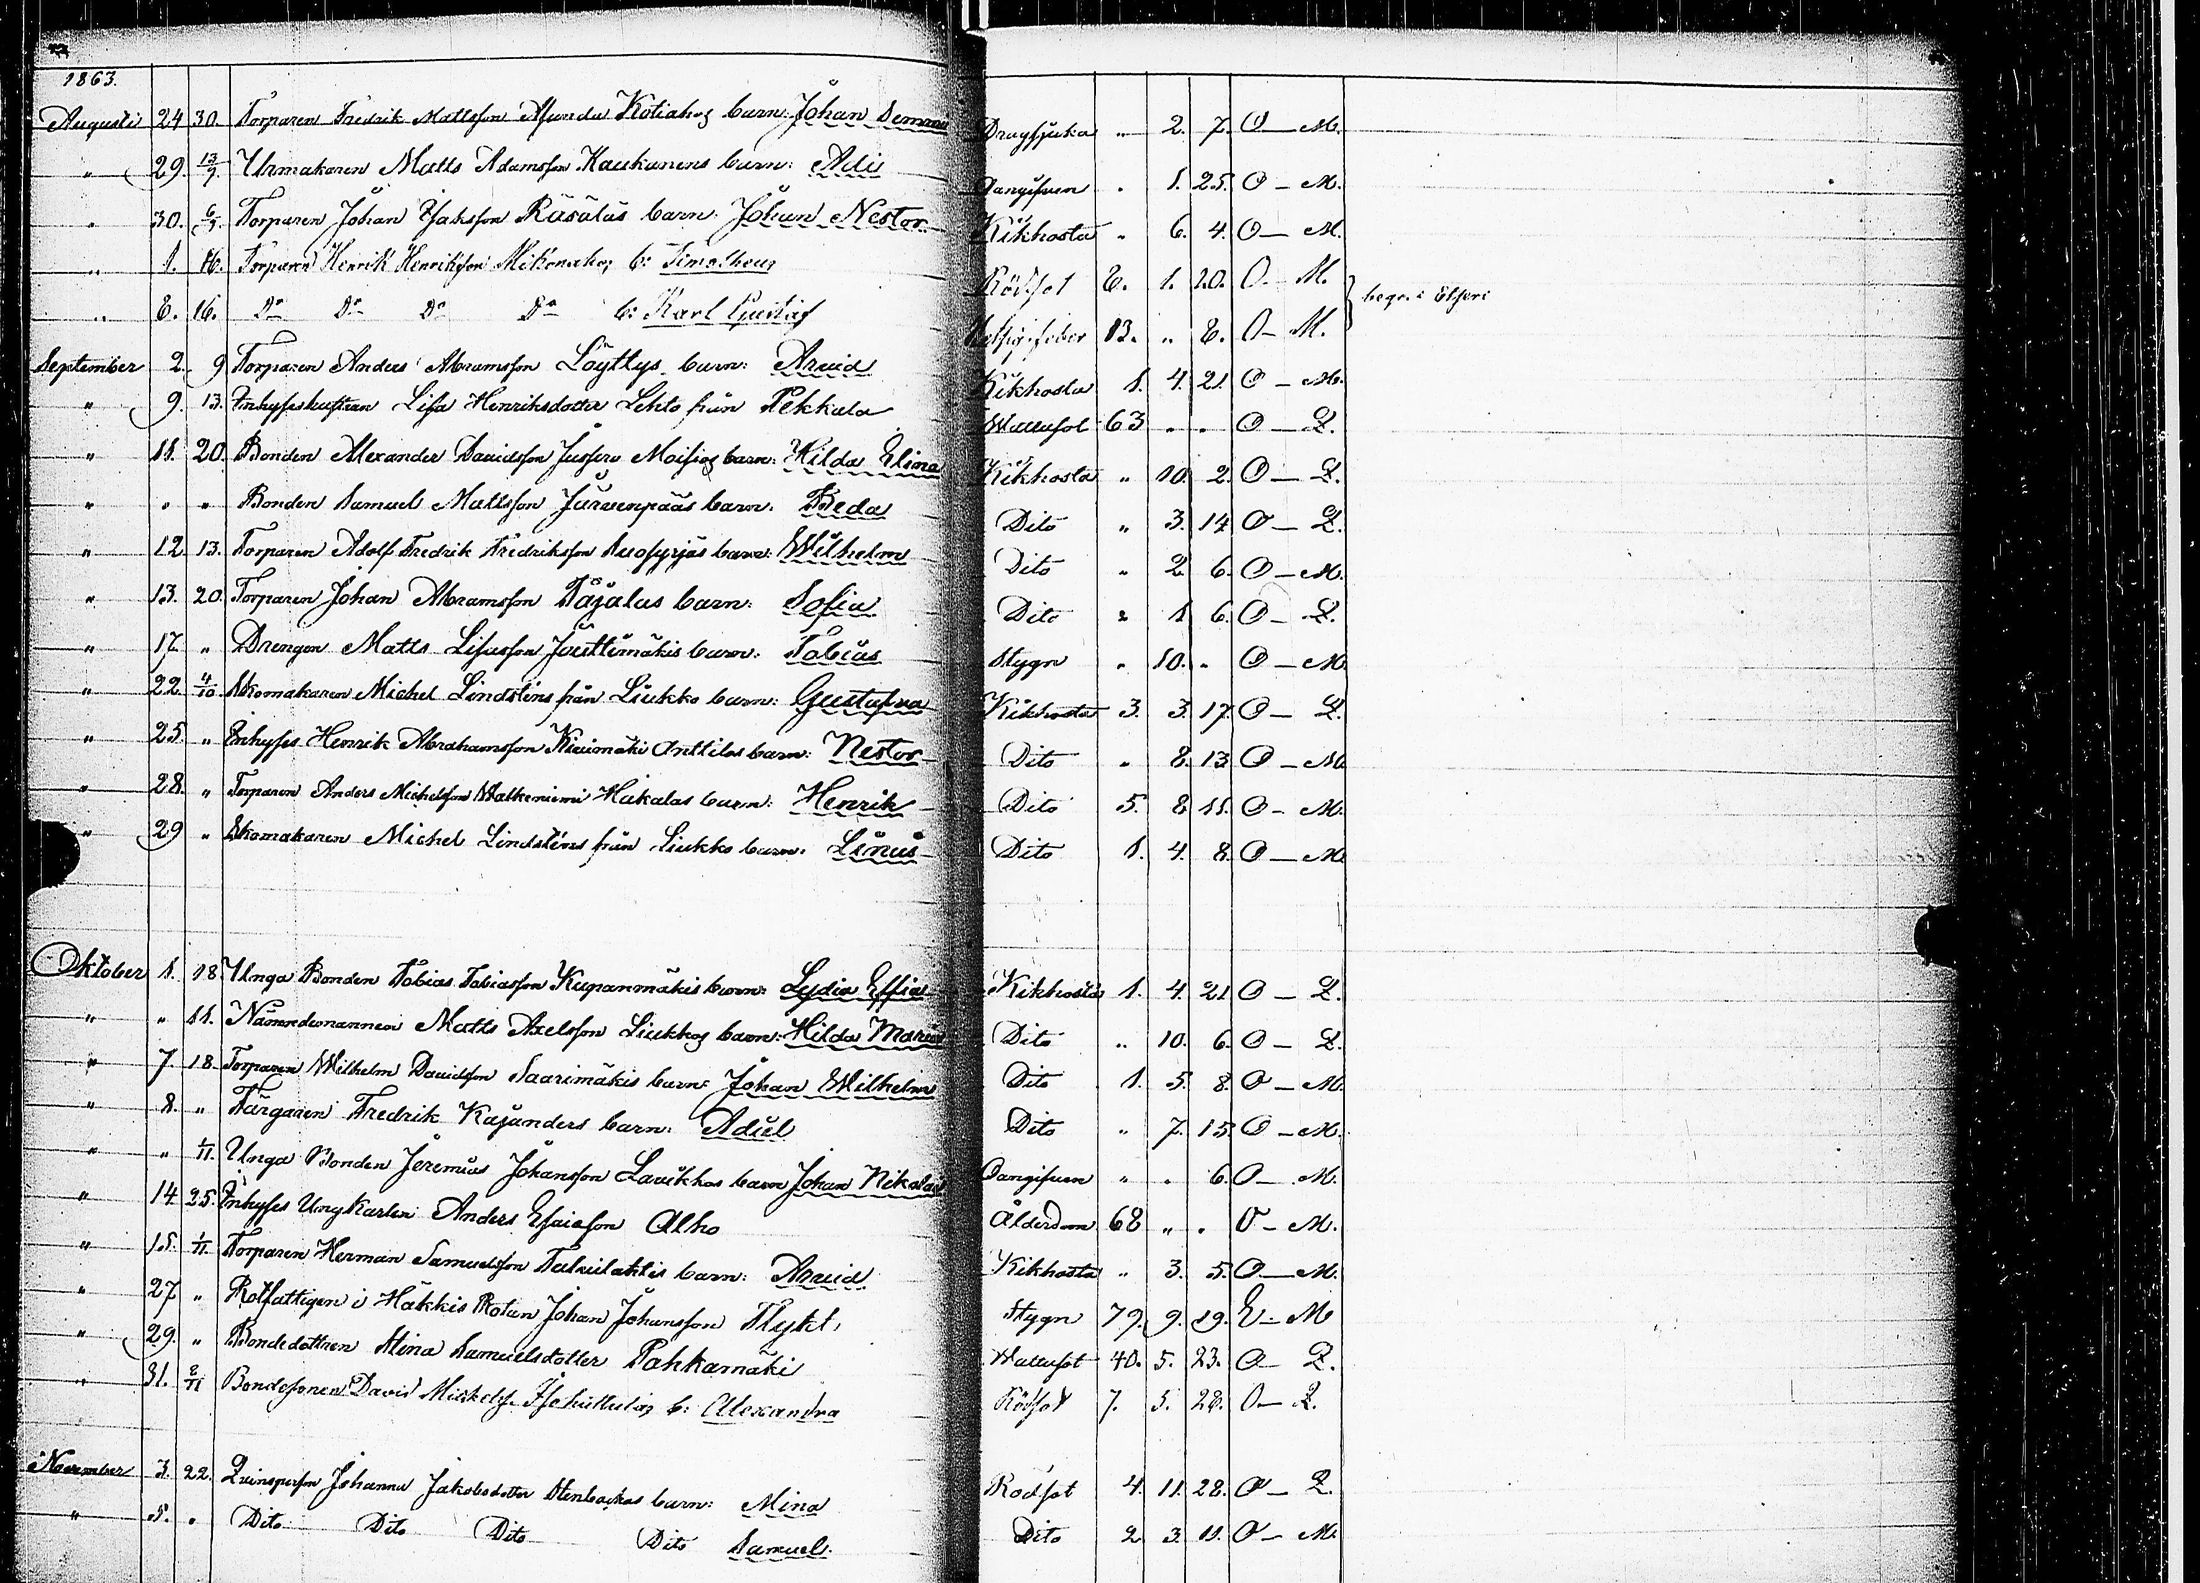 1863.
Augusti 24 30. Torparen Fredrik Mattsson Asunda Kotiahos barn: Johan Dragsjuka " 2. 7. O — M.
" 29. 13/9. Urmakaren Matts Adamsson Kaukanens barn: Adi Oangifven " 1. 25. O — M.
" 30. 6/9. Torparen Johan Isaksson Räsäläs barn: Johan Nestor Kikhosta " 6. 4. O — M.
" 1. 16. Torparen Henrik Henriksson Mikonahos b: Timotheus Rödsot 6. 1. 20. O — M.
" 6. 16. Do Do Do Do b: Karl Gustaf Hetsig feber 13. " 6. O — M. } begr. i Etseri
September 2. 9 Torparen Anders Abramsson Löyttys barn: Arvid Kikhosta 1. 4. 21. O — M.
" 9. 13. Inhyseshustrun Lisa Henriksdotter Lehto från Pekkala Wattusot 63 " " O — Q.
" 11. 20. Bonden Alexander Davidsson Jussero Moisios barn: Hilda Elina Kikhosta " 10. 2. O — Q.
" " " Bonden Samuel Mattsson Järvenpääs barn: Beda Dito " 3. 14 O — Q.
" 12. 13. Torparen Adolf Fredrik Fredriksson Suosyrjäs barn: Wilhelm Dito " 2 6. O — M.
" 13. 20. Torparen Johan Abramsson Pajalas barn: Sofia Dito " 1 6. O — Q.
" 17. " Drengen Matts Lisasson JoUSttimäkis barn: Tobias Stygn " 10. " O — M
" 22. 4/10. Skomakaren Michel Lindstens från Liukko barn: Gustafva Kikhosta 3. 3. 17. O — Q.
" 25 " Inhyses Henrik Abrahamsson Kivimäki Anttilas barn: Nestor Dito " 8. 13 O — M
" 28. " Torparen Anders Michelsson Walkeniemi Hakalas barn: Henrik Dito 5. 8 11. O — M.
" 29 " Skomakaren Michel Lindstens från Liukko barn: Linus Dito 1. 4. 8. O — M
Oktober 1. 18 Unga Bonden Tobias Tobiasson Kupanmäkis barn: Lydia Effia Kikhosta 1. 4. 21 O — Q.
" " 11. Nämndemannen Matts Axelsson Liukkos barn: Hilda Maria Dito " 10. 6. O — Q.
" 7. 18. Torparen Wilhelm Davidsson Saarimäkis barn: Johan Wilhelm Dito 1. 5. 8. O — M.
" 8. " Färgaren Fredrik Kajanders barn: Adiel Dito " 7. 15. O — M.
" " 1/11. Unga Bonden Jeremias Johansson Laukkas barn Johan Nikolai Oangifven " " 6. O — M.
" 14 25. Inhyses Ungkarlen Anders Esaiasson Alho Ålderdom 68 " " O — M.
" 15. 1/11 Torparen Herman Samuelsson Talvilahtis barn: Arvid Kikhosta " 3. 5. O — M.
" 27 " Rotfattigen i Häkkis Rotan Johan Johansson Flykt, Stygn 79. 9. 19. E — M
" 29. " Bondedottren Mina Samuelsdotter Pahkamäki Wattusot 40. 5. 23. O — Q.
" 31. 8/11 Bondesonen David Mickelss. b: Alexandra Rödsot 7. 5. 28. O — Q.
November 3. 22. Qvinsperson Johanna Jakobsdotter Stenbackas barn: Mina Rödsot 4. 11. 28. O — Q.
" 5. " Dito Dito Dito Dito Samuel. Dito 2 3. 11. O — M.